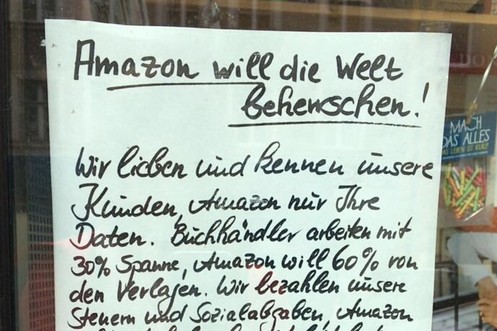 Amazon will die Welt
beherrschen!
Wir lieben und kennen unsere
Kunden, Amazon nur Ihre
Daten. Buchhändler arbeiten mit
30% Spanne, Amazon will 60% von
den Verlagen. Wir bezahlen unsere
Steuern und Sozialabgaben, Amazon
MACH
DAS ALLES